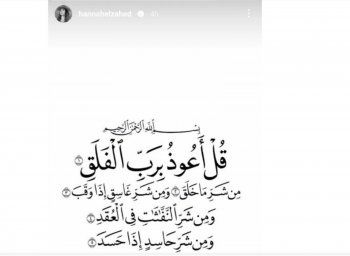 hannahelzahed 4h
بِسْمِ اللَّهِ الرَّحْمَٰنِ الرَّحِيمِ
قُلْ أَعُوذُ بِرَبِّ الْفَلَقِ ۝١
مِن شَرِّ مَا خَلَقَ ۝٢ وَمِن شَرِّ غَاسِقٍ إِذَا وَقَبَ ۝٣
وَمِن شَرِّ النَّفَّاثَاتِ فِي الْعُقَدِ ۝٤
وَمِن شَرِّ حَاسِدٍ إِذَا حَسَدَ ۝٥